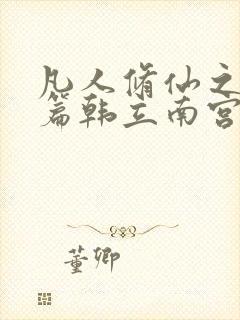 凡人脩仙之
篇韩立南宫
董卿